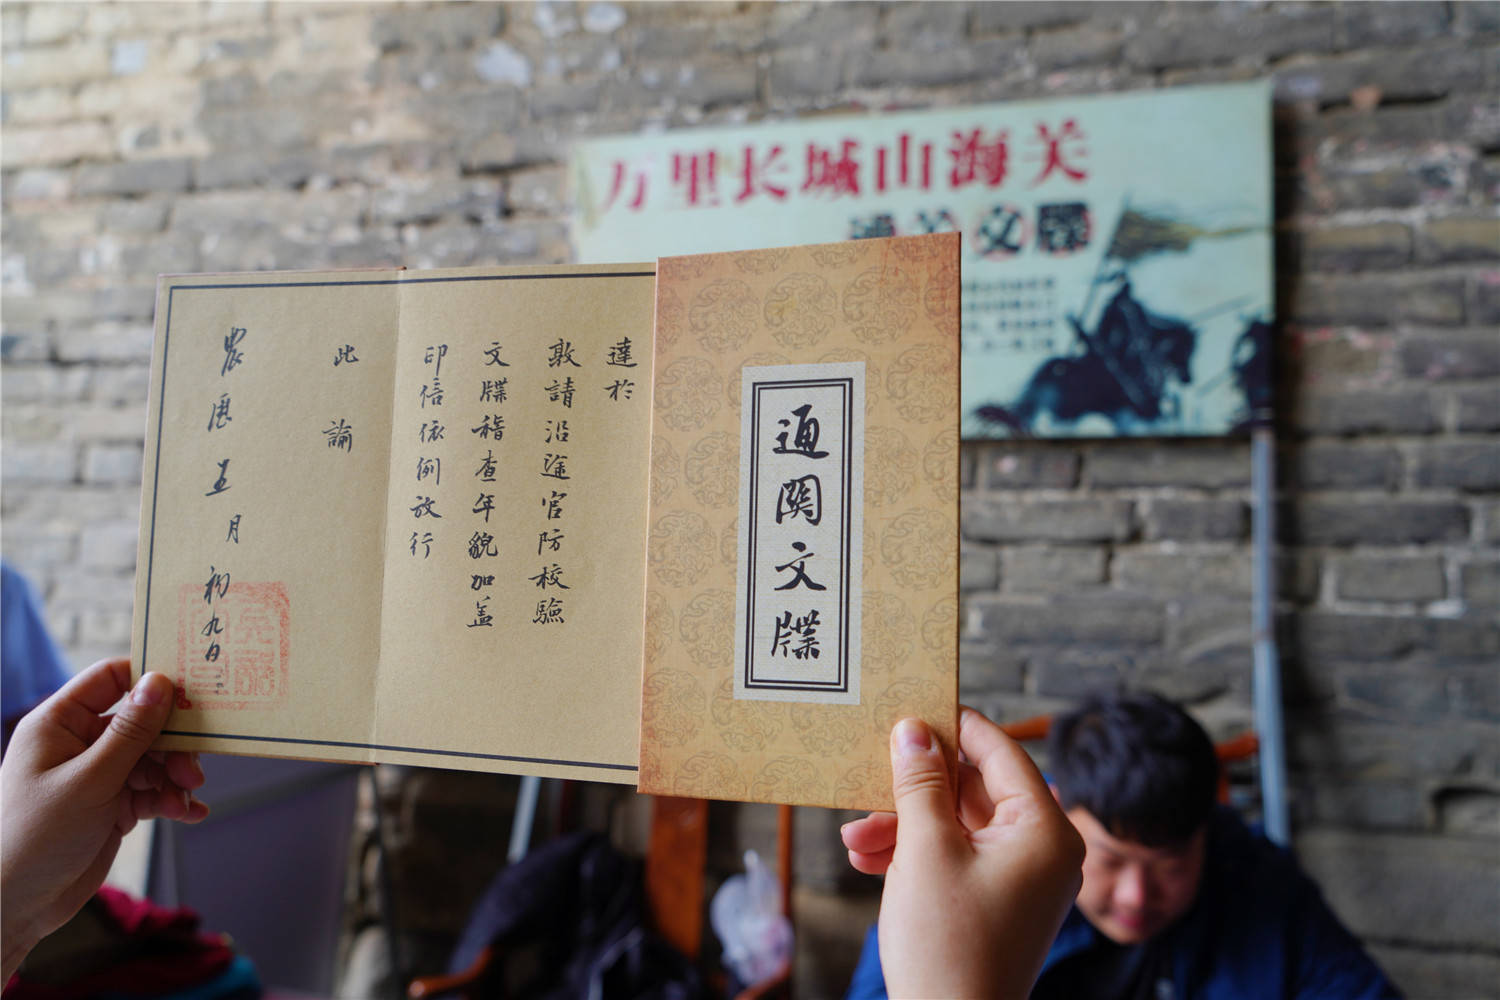 万里长城山海关
通关文牒
通關文牒
達於
敦請沿途官防校驗
文牒稽查年貌加盖
印信依例放行
此諭
五月初九日